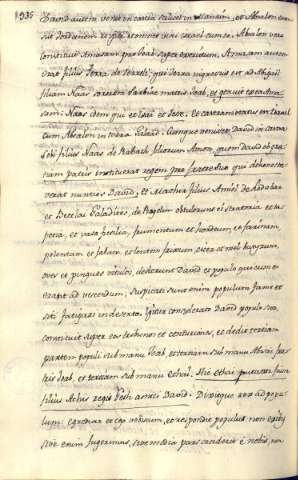 1935
David autem venit in castra and Manaim, et Absalon tran
sivit Jordanem et ipse et omnes viri israel cum eo. Absalon vero
constituit Amasam pro Joab super exercitum. Amasam autem
erat filius Jetra de Jezreli; qui Jetra ingressus est ad Abigail
filiam Naas sororem Sarbiae matris Joab, et genuit ex ea Ama
sam. Naas idem qui et Isai et Jesse. et castrametatus est israel
cum Absalon in terra Galaad. Cumque venisset David in castra
Sobi filius Naas de Rabath filiorum Amon, quem David
regem pro fratre suo qui dehones
taverat nuncios David; et Machir filius Amiel de Lodabar
et Bercelai Galadites, de Rogelim obtulerunt ei stratoria et ta
peta, et vasa fictilia, frumentum et hordeum, et farinam
polentam et fabam, et lentem frixum cicer et mel butyrum,
oves et pingues vitulos, dederunt David et populo qui cum eo
erat ad vescendum, suspicati sunt enim populum fame et
siti fatigari in deserto. Igitur considerato David populo suo,
constituit super eos tribunos et centuriones, et dedit tertiam
partem populi sub manu Joab, et tertiam sub manu Abisai fra
tris Joab, et tertiam sub manu ethai. Hic ethai putatur fuisse
filius Achis regis Geth amici David. Dixitque rex ad popu
lum: egrediar et ego vobiscum, et respondit populus non exibis
sive enim fugerimus, sive media pars ceciderit e nobis, non